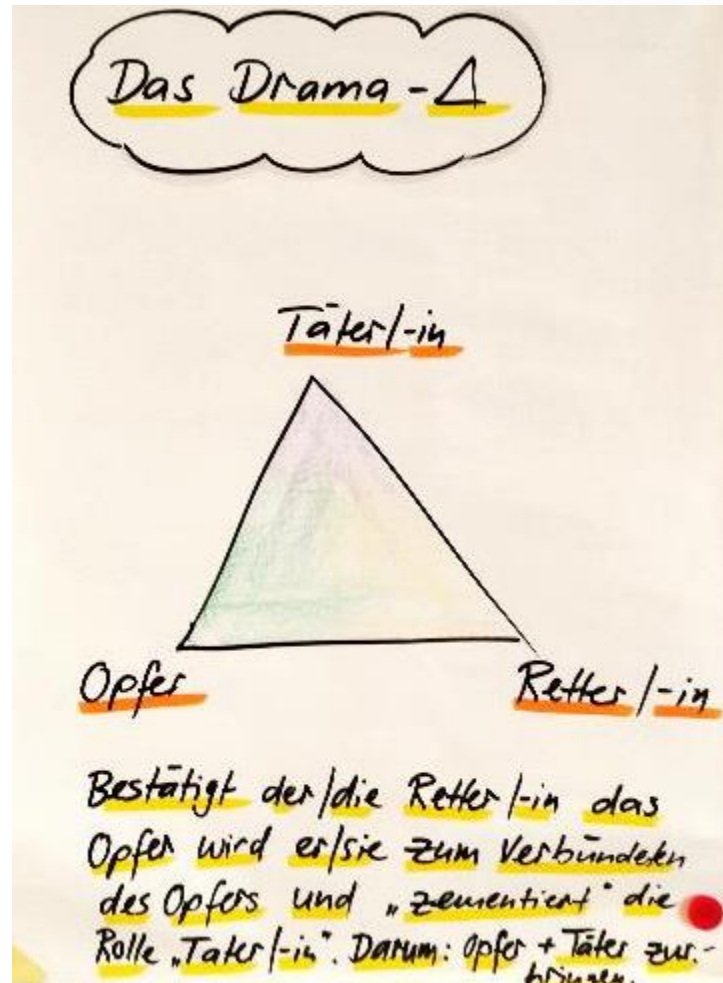 Das Drama - Δ
Täter/-in
Opfer
Retter/-in
Bestätigt der/die Retter/-in das
Opfer wird er/sie zum Verbündeten
des Opfers und „zementiert“ die
Rolle „Täter/-in“. Darum: Opfer + Täter zus.-
bringen.